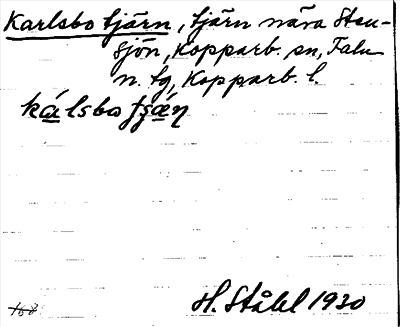 Karlsbo tjärn, tjärn nära Sten-
sjön, Kopparb. sn, Falu
n. tg, Kopparb. l.
kálsbo
H. Ståhl 1930